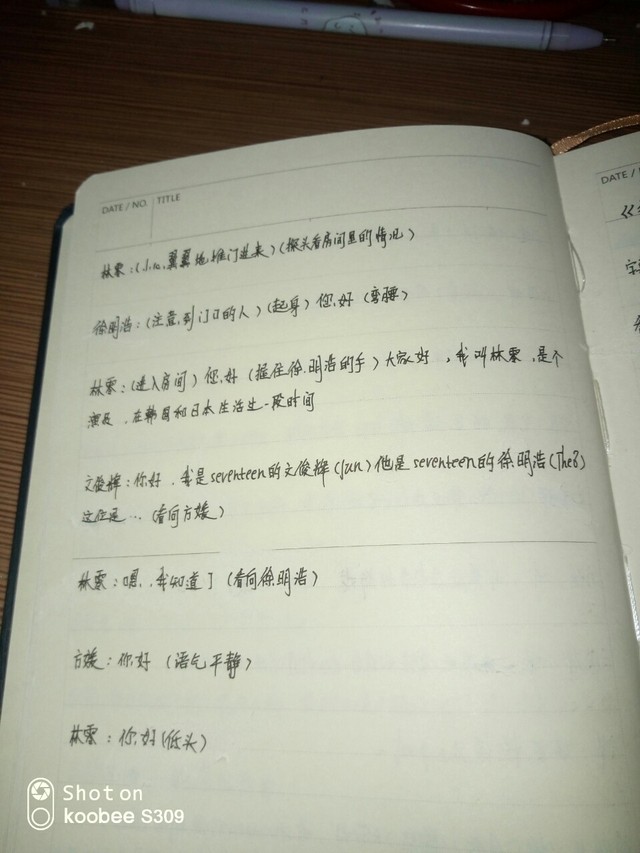 DATE / NO. TITLE
林霂：(小心翼翼地推门进来)(探头看房间里的情况)
徐明浩：(注意到门口的人)(起身) 您好 (弯腰)
林霂：(进入房间) 您好 (握住徐明浩的手) 大家好，我叫林霂，是个
演员，在韩国和日本生活过一段时间
文俊辉：你好，我是seventeen的文俊辉(Jun) 他是seventeen的徐明浩(The8)
这位是… (看向方媛)
林霂：嗯，我知道了 (看向徐明浩)
方媛：你好 (语气平静)
林霂：你好 (低头)
DATE /
Shot on
koobee S309